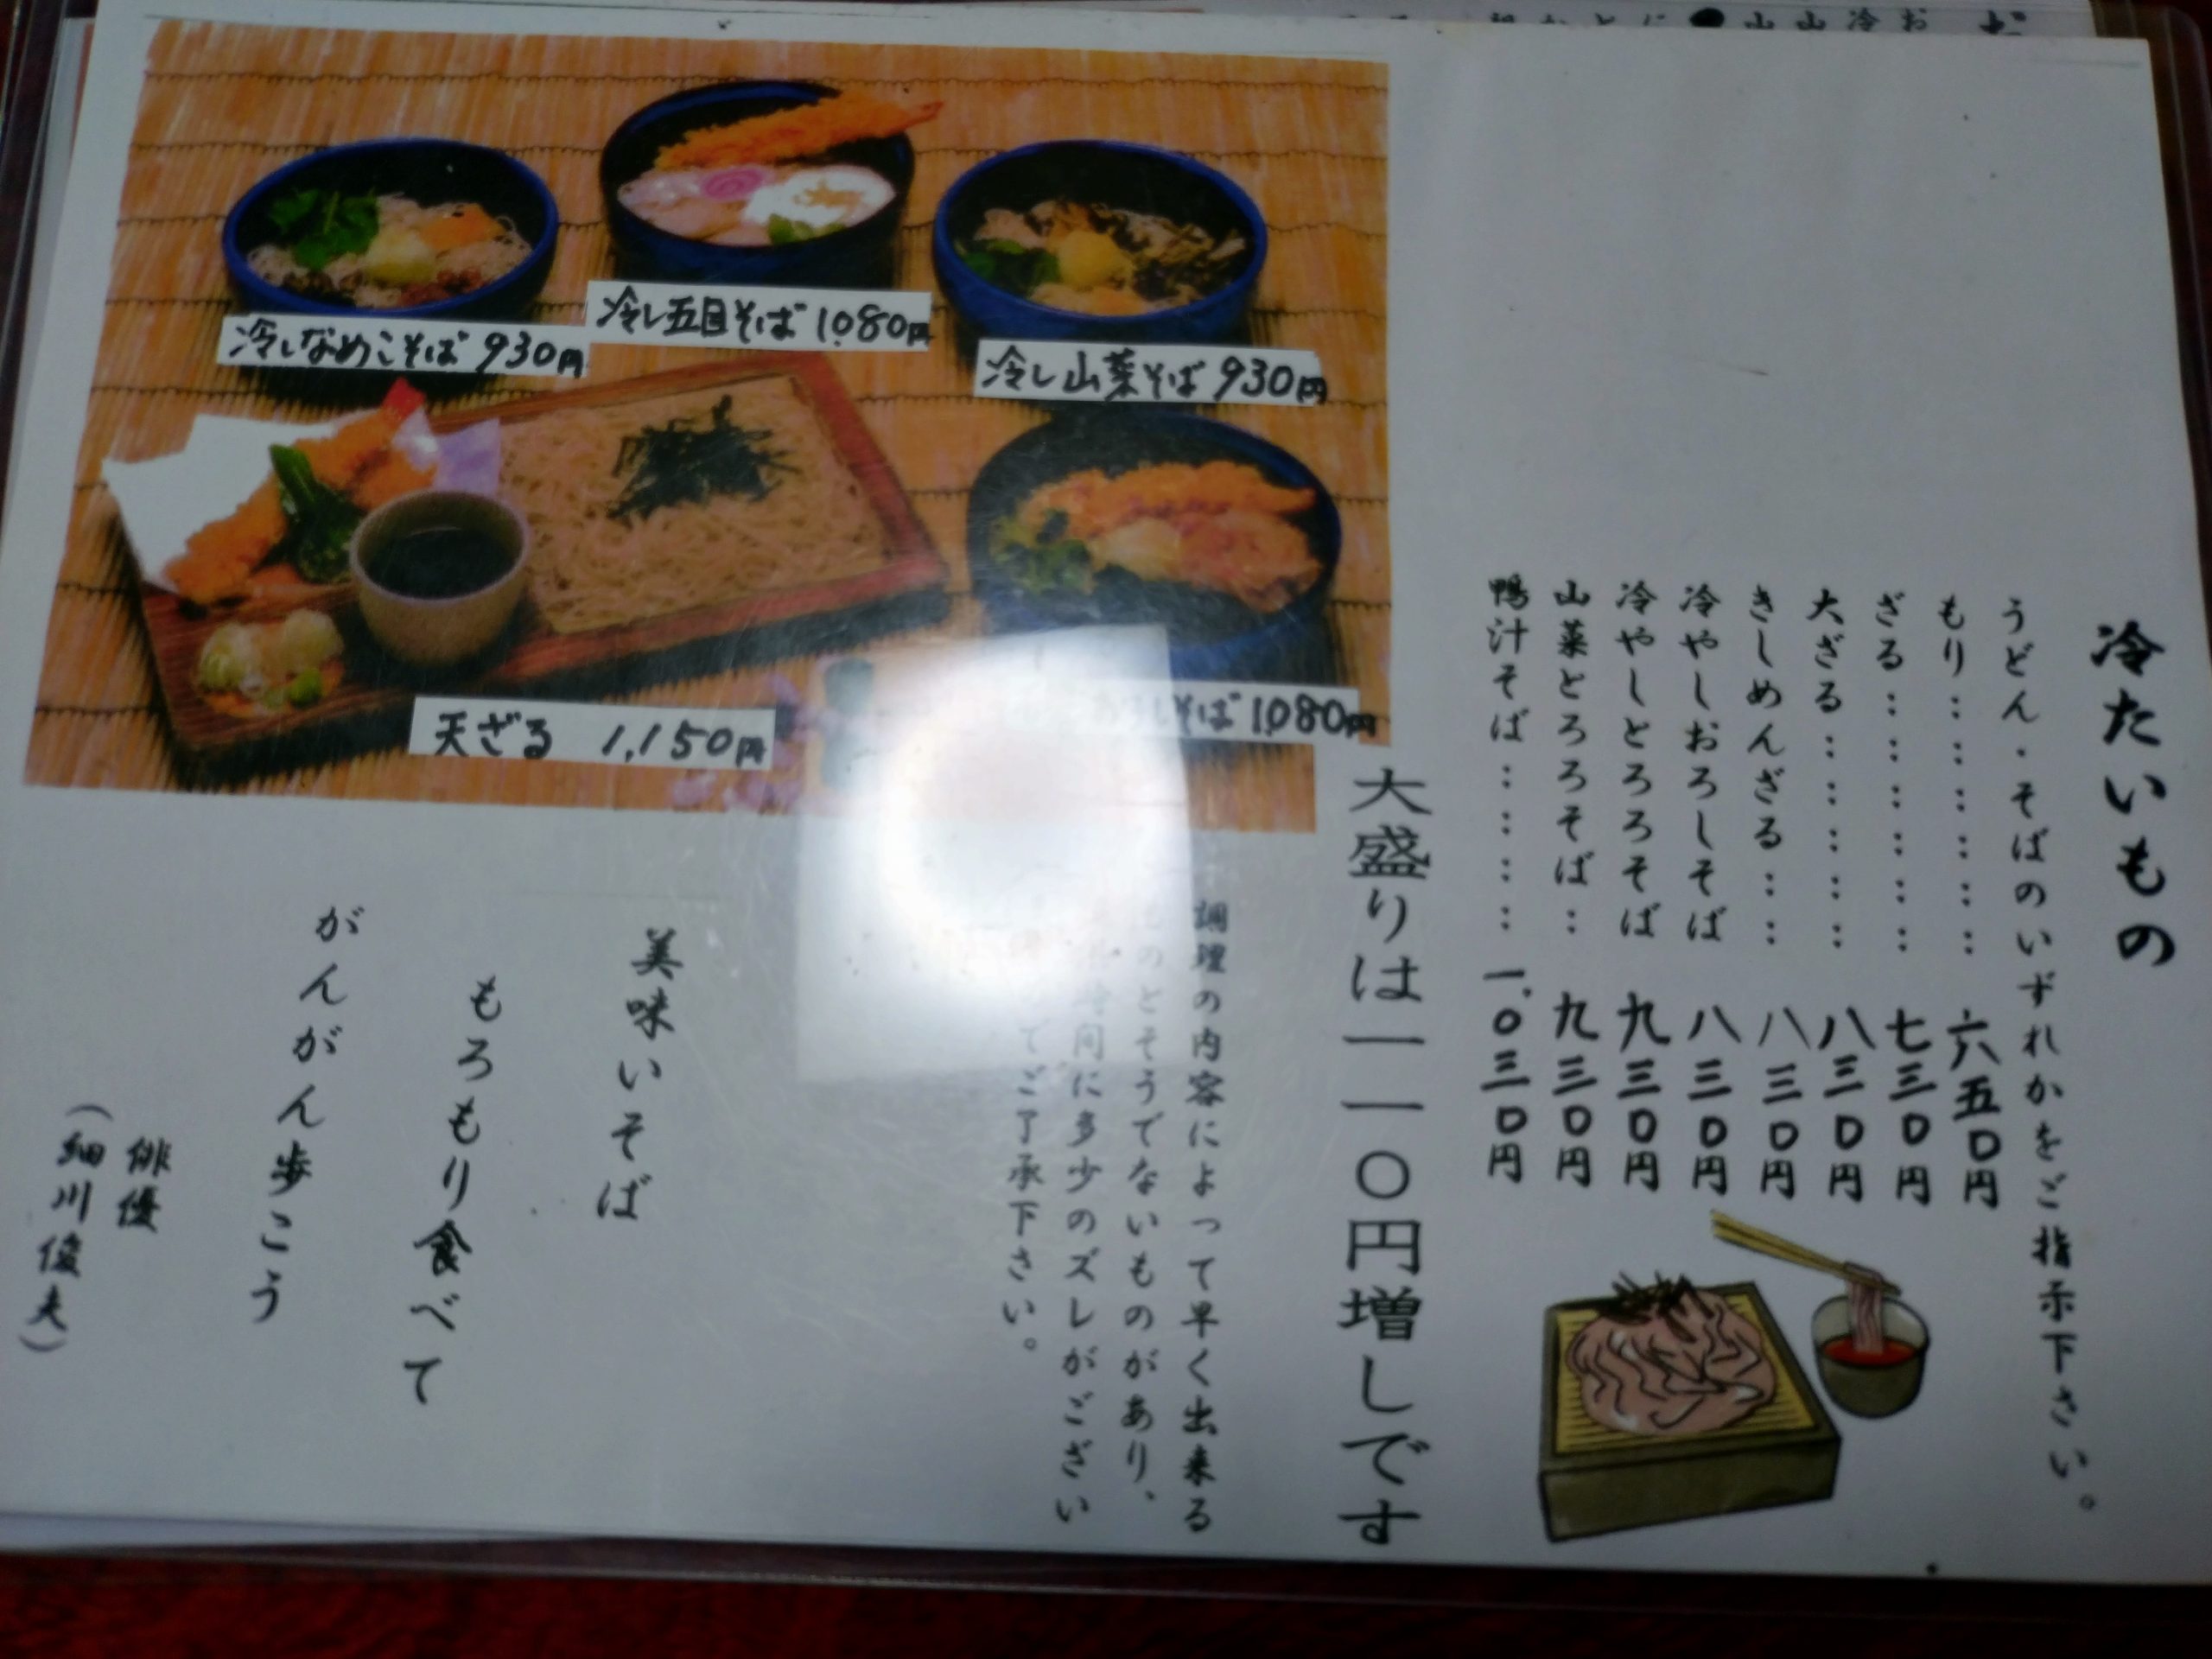 冷たいもの
うどん・そばのいずれかをご指示下さい。
もり 六五〇円
ざる 七三〇円
大ざる 八三〇円
きしめんざる 八三〇円
冷やしおろしそば 八三〇円
冷やしとろろそば 九三〇円
山菜とろろそば 九三〇円
鴨汁そば 一、〇三〇円
大盛りは一一〇円増しです
冷しなめこそば 930円
冷し五目そば 1,080円
冷し山菜そば 930円
天ざる 1,150円
おろしそば 1,080円
調理の内容によって早く出来る
ものとそうでないものがあり、
時間に多少のズレがござい
てご了承下さい。
美味いそば
もろもり食べて
がんがん歩こう
俳優
(細川俊夫)